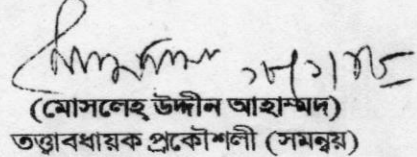 (মোসলেহ উদ্দীন আহাম্মদ)
তত্ত্বাবধায়ক প্রকৌশলী (সমন্বয়)